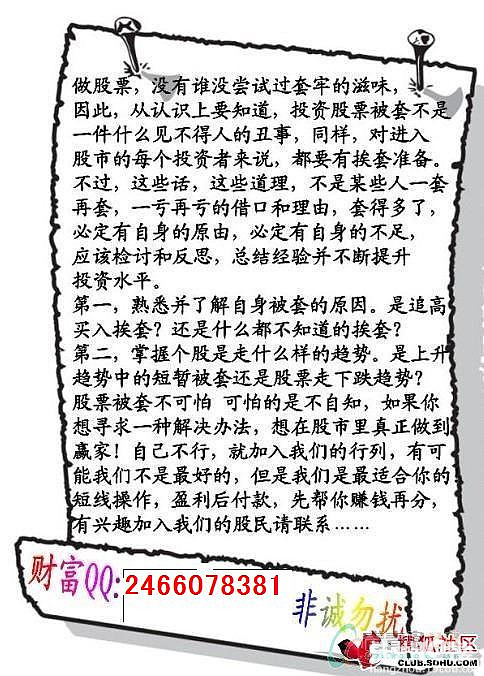 做股票，没有谁没尝试过套牢的滋味，
因此，从认识上要知道，投资股票被套不是
一件什么见不得人的丑事，同样，对进入
股市的每个投资者来说，都要有挨套准备。
不过，这些话，这些道理，不是某些人一套
再套，一亏再亏的借口和理由，套得多了，
必定有自身的原由，必定有自身的不足，
应该检讨和反思，总结经验并不断提升
投资水平。
第一，熟悉并了解自身被套的原因。是追高
买入挨套？还是什么都不知道的挨套？
第二，掌握个股是走什么样的趋势。是上升
趋势中的短暂被套还是股票走下跌趋势？
股票被套不可怕 可怕的是不自知，如果你
想寻求一种解决办法，想在股市里真正做到
赢家！自己不行，就加入我们的行列，有可
能我们不是最好的，但是我们是最适合你的
短线操作，盈利后付款，先帮你赚钱再分，
有兴趣加入我们的股民请联系……
财富QQ:2466078381
非诚勿扰
搜狐社区
CLUB.SOHU.COM